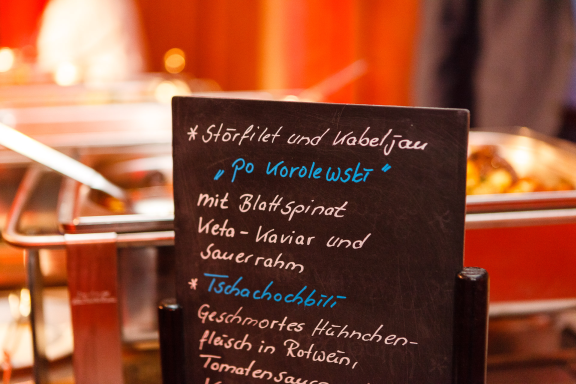 * Störfilet und Kabeljau
„Po Korolewski“
mit Blattspinat
Keta-Kaviar und
Sauerrahm
* Tschachochbili
Geschmortes Hühnchen-
fleisch in Rotwein,
Tomatensauce